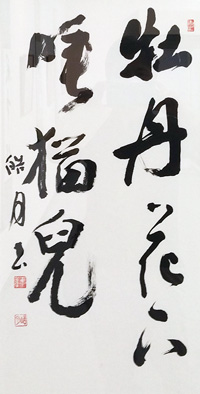 牡丹花下
睡猫兒
皓月書